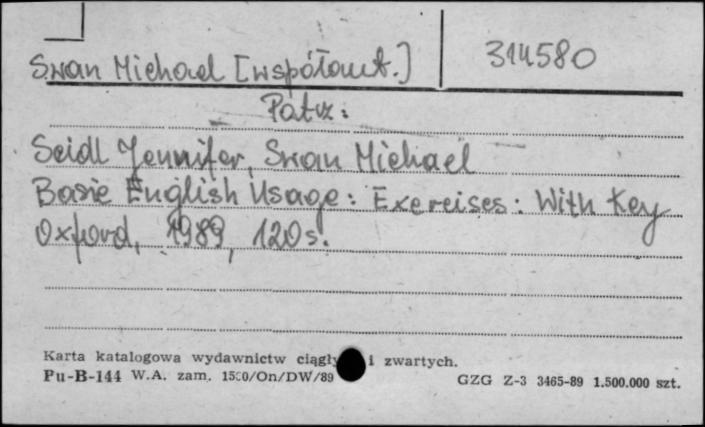 Swan Michael [współaut.] 314580
Patrz:
Seidl Jennifer, Swan Michael
Basic English Usage: Exercises: With Key
Oxford, 1989, 120 s.
Karta katalogowa wydawnictw ciągły i zwartych.
Pu-B-144 W.A. zam. /On/DW/89 GZG Z-3 3465-89 1.500.000 szt.